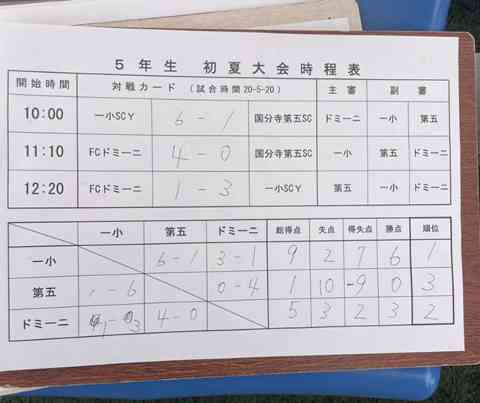 5年生 初夏大会時程表
開始時間 対戦カード (試合時間20-5-20) 主審 副審
10:00 一小SCY 6 - 1 国分寺第五SC ドミーニ 一小 第五
11:10 FCドミーニ 4 - 0 国分寺第五SC 一小 第五 ドミーニ
12:20 FCドミーニ 1 - 3 一小SCY 第五 一小 ドミーニ
一小 第五 ドミーニ 総得点 失点 得失点 勝点 順位
一小 6-1 3-1 9 2 7 6 1
第五 1-6 0-4 1 10 -9 0 3
ドミーニ 1-3 4-0 5 3 2 3 2